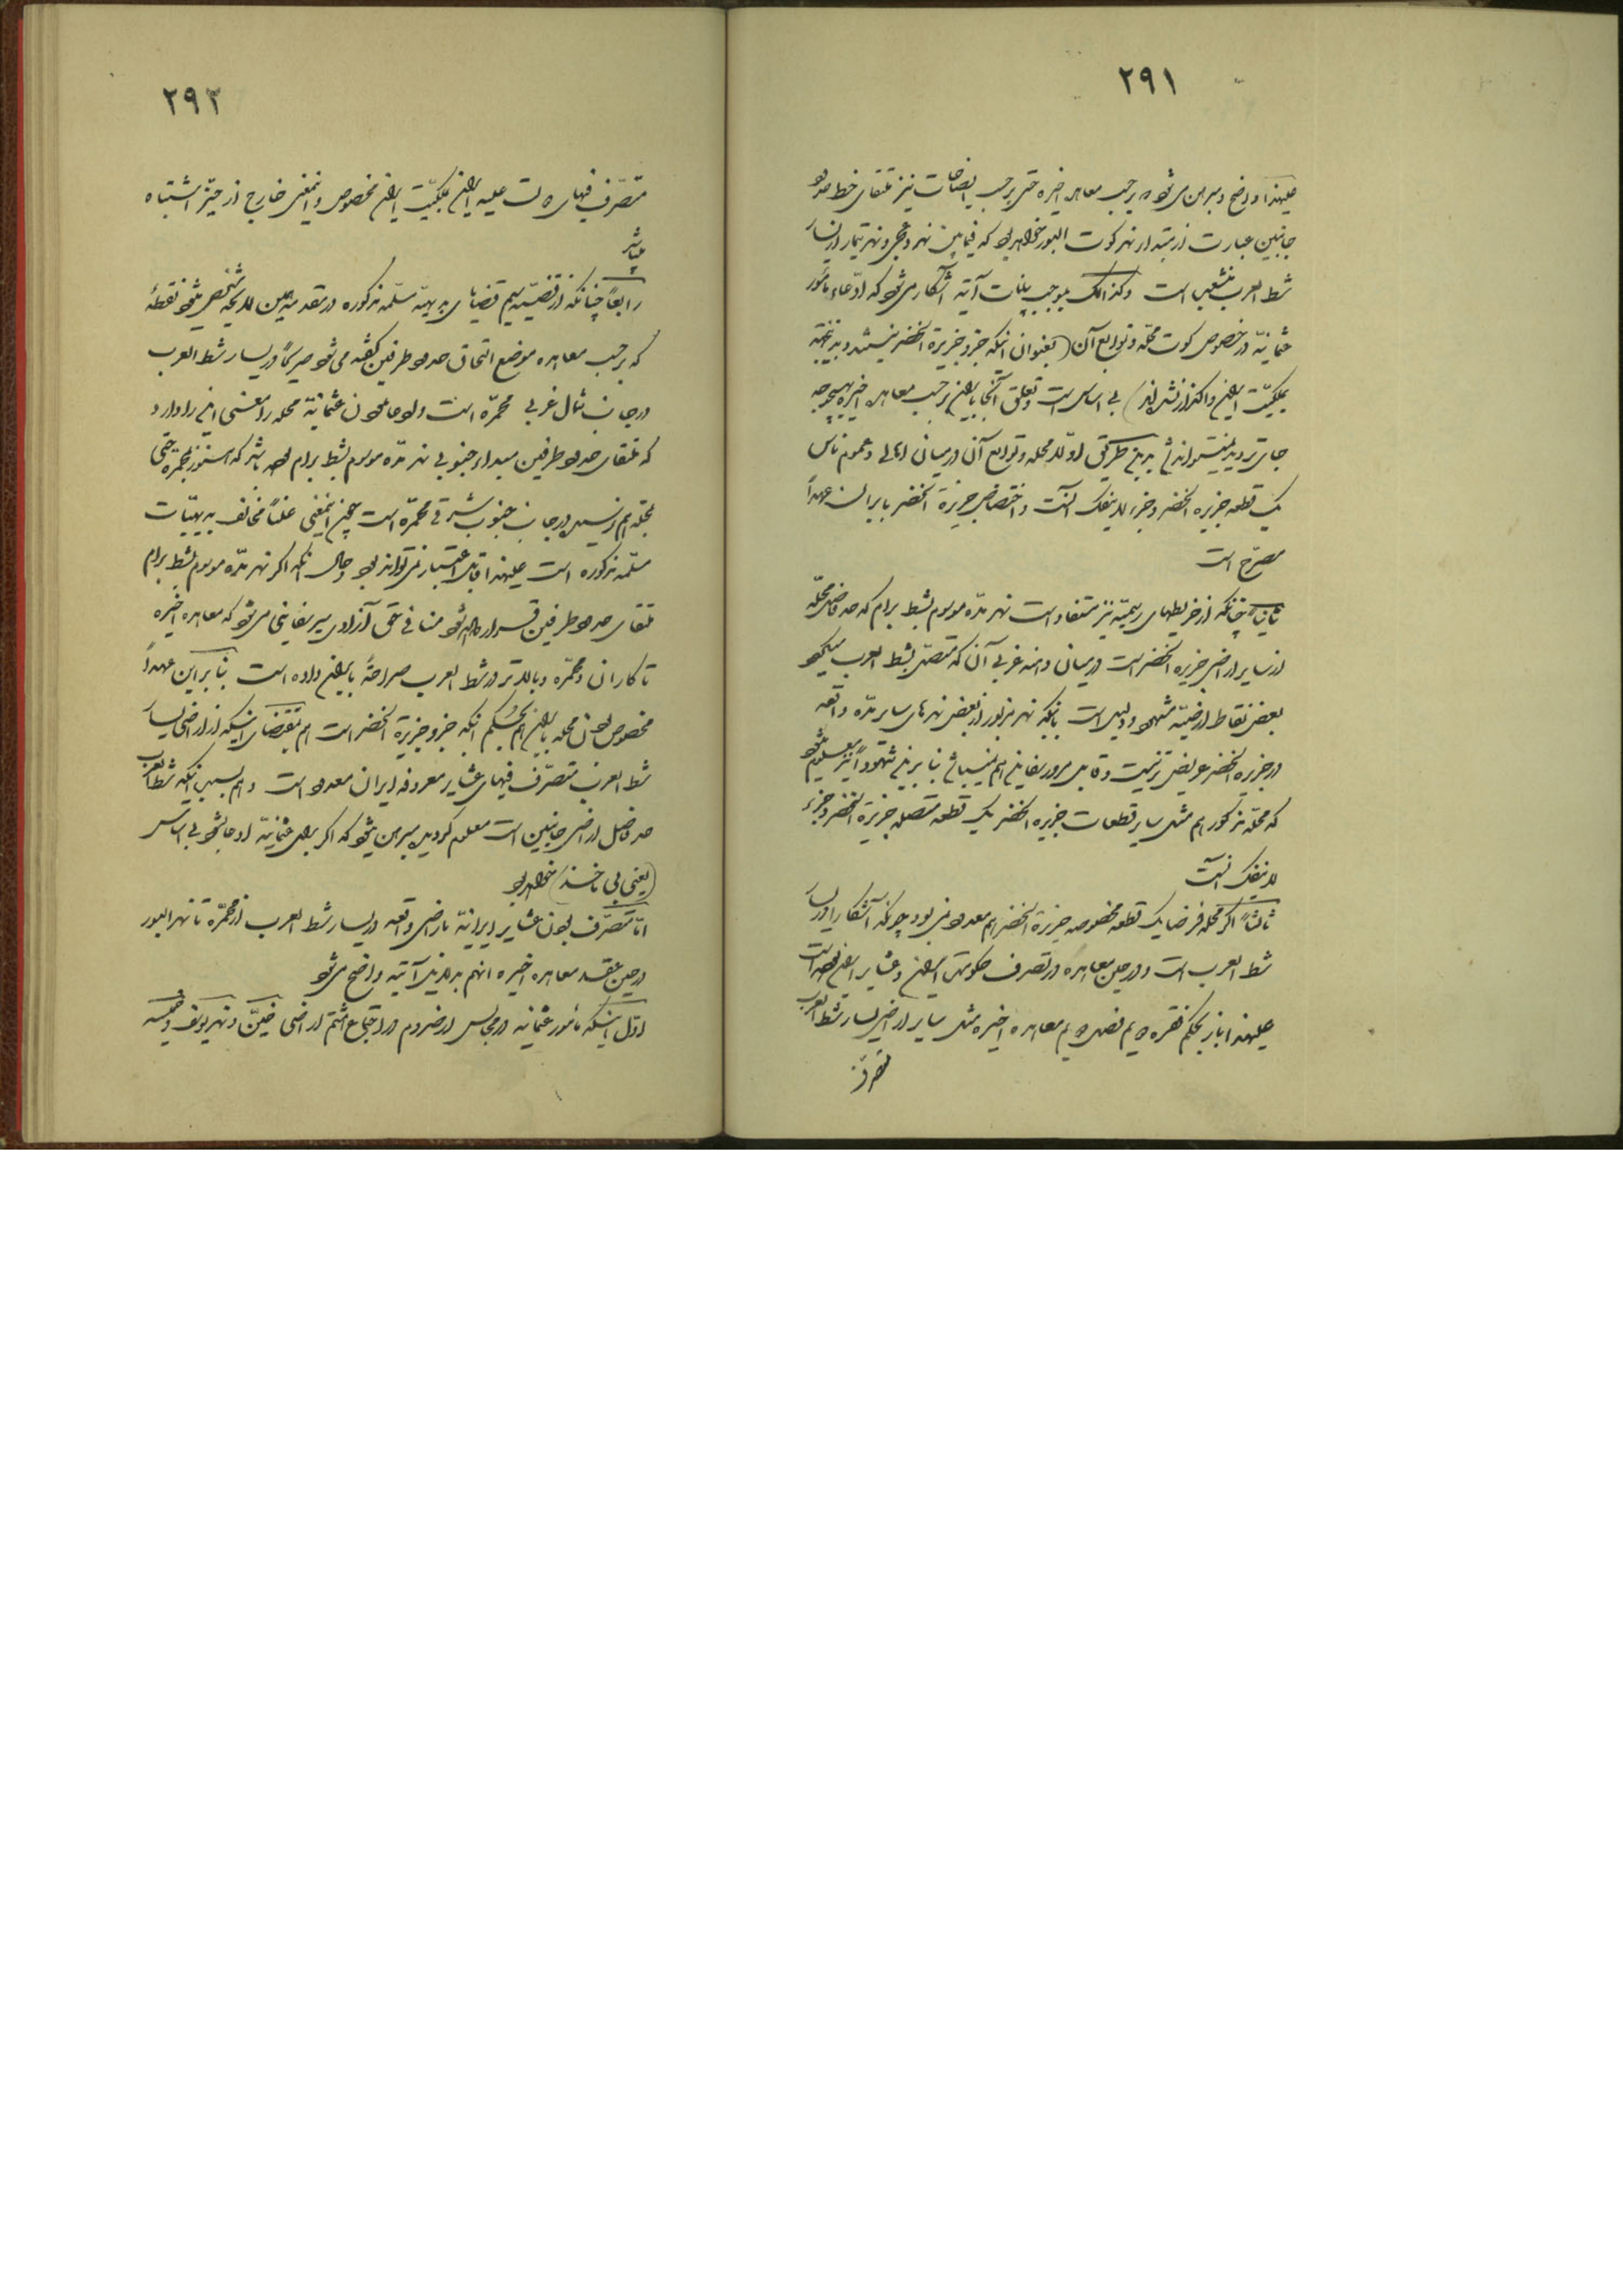 ۲۹۱
علیهذا واضح و مبرهن می‌شود که بر حسب معاهده اخیره حتی بر حسب ایضاحات نیز ملتقای خط حدود
جانبین عبارت از مبتداء نهر کوت البور خواهد بود که فیما بین نهر و نهر تمار از یسار
شط العرب منشعب است وکذالک بموجب بیانات آتیه آشکار می‌شود که ادّعاء مأمور
عثمانیّه در خصوص کوت محلّه و توابع آن (بعنوان اینکه جزو جزیرة الخضر نیستند و
بملکیّت ایران واگذار نشده‌اند) بی اساس است و تعلق آنجا بایران بر حسب معاهده اخیره بهیچوجه
جای تردید نمیتواند شد بدین طریق اولا محله و توابع آن در میان اهالی و عموم ناس
یک قطعه جزیره الخضر و جزء لاینفک آنست و اختصاص جزیرة الخضر بایران عهداً
مصرّح است
ثانیاً چنانکه از خریطهای رسمیّه نیز مستفاد است نهر مدّه موسوم بشط برام که حد فاصل محلّه
از سایر اراضی جزیره الخضر است در میان دهنه غربی آن که متصل بشط العرب میشود
بعض نقاط ارضیّه مشهود و دلیل است بانکه نهر مزبور از بعض نهرهای سایر مدّه واقعه
در جزیره الخضر عریض تر نیست و قابل مرور سفاین هم نمیباشد بنابرین شهوداً نیز معلوم میشود
که محلّه مذکور هم مثل سایر قطعات جزیره الخضر یک قطعه متصله جزیرة الخضر و جزء
لاینفک آنست
ثالثاً اگر محله فرضا یک قطعه مخصوصه جزیرة الخضر هم معدود نمی‌بود چونکه آشکارا در یسار
شط العرب است و در حین معاهده در تصرف حکومتی ایران و عشایر ایران بوده است
علیهذا باز بحکم فقره دویم فصل دویم معاهده اخیره مثل سایر اراضی یسار شط العرب
متصرف
۲۹۲
متصرّف فیهای دولت علیه ایران بملکیّت ایران مخصوص و اینمعنی خارج از حیّز اشتباه
میباشد
رابعاً چنانکه از قضیّه سیم قضایای بدیهیّه مسلّمه مذکوره در مقدمه مبین لایحه مشخص میشود نقطهٔ
که بر حسب معاهده موضع التحاق حدود طرفین گفته می‌شود صریحاً در یسار شط العرب
در جانب شمال غربی محمّره است ولو جانب عثمانیّه محله را معنی اینرا دارد
که ملتقای حدود طرفین مبداء جنوبی نهر مدّه موسوم بشط برام بوده باشد که از محمّره حتی
محله هم در جانب جنوب شرقی محمّره است چون اینمعنی علناً مخالف بدیهیّات
مسلّمه مذکوره است علیهذا قابل اعتبار نمی‌تواند بود و حال آنکه اگر نهر مدّه موسوم بشط برام
ملتقای حدود طرفین قرار داده شود منافی حق آزادی سیر سفاینی می‌شود که معاهده اخیره
تا کارون و محمّره و بالاتر در شط العرب صراحةً بایران داده است بنابراین عهداً
مخصوص بودن محله بایران هم بحکم اینکه جزو جزیرة الخضر است هم بمقتضای اینکه از اراضی یسار
شط العرب متصرّف فیهای عشایر معروفه ایران معدود است و هم بسبب اینکه شط العرب
حد فاصل اراضی جانبین است معلوم گردید مبرهن میشود که اگر برای عثمانیّه ادعا بشود بی اساس
(یعنی بی ماخذ) خواهد بود
امّا متصرّف بودن عشایر ایرانیّه باراضی واقعه در یسار شط العرب از محمّره تا نهر البور
در حین عقد معاهده اخیره آنهم بدلایل آتیه واضح می‌شود
اوّل اینکه مأمور عثمانیه در مجالس ارضروم در اجتماع هشتم اراضی حیّن و نهر یوسف و خمیسه